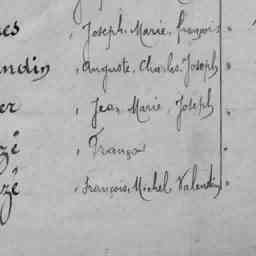 es , Joseph, Marie, françois "
ndin , Auguste, Charles, Joseph "
er , Jean Marie Joseph "
zé , François "
zé , François, Michel Valentin "